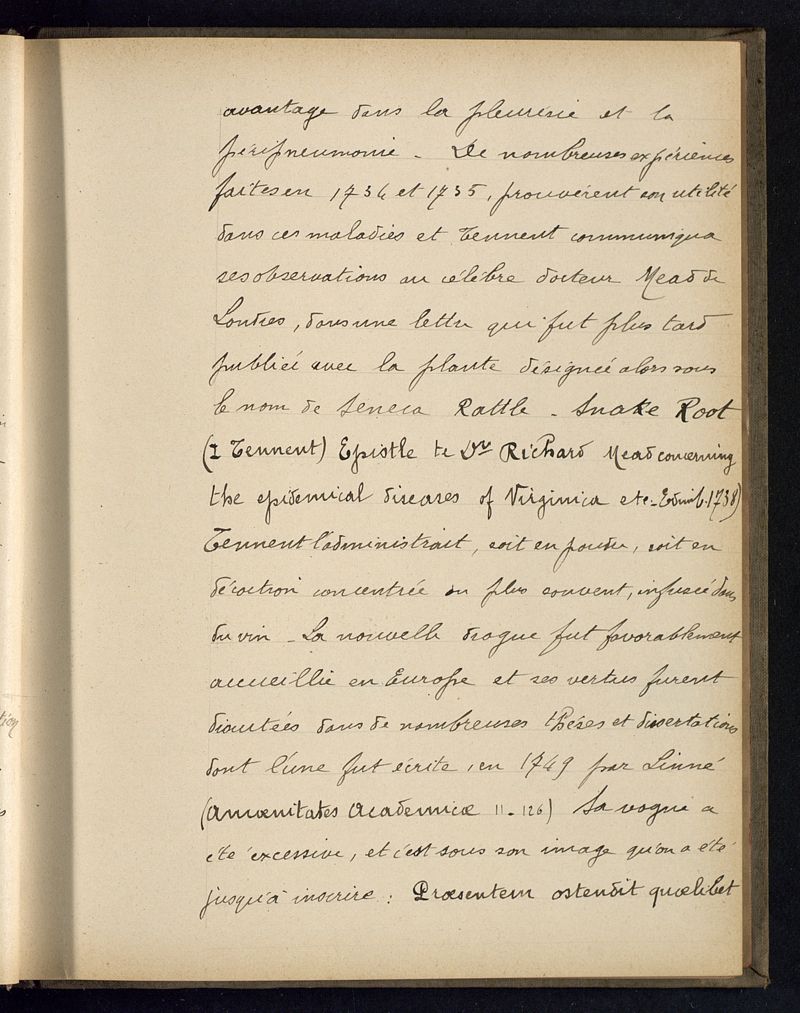 avantage dans la pleurésie et la
péripneumonie - De nombreuses expériences
faites en 1734 et 1735, prouvèrent son utilité
dans ces maladies et Tennent communiqua
ses observations au célèbre docteur Mead de
Londres, dans une lettre qui fut plus tard
publiée avec la plante désignée alors sous
le nom de Seneca Rattle - Snake Root
(I Tennent) Epistle to Dr Richard Mead concerning
the epidemical diseases of Virginica etc - Edimb. 1738)
Tennent l'administrait, soit en poudre, soit en
décoction concentrée ou plus souvent, infusée dans
du vin - La nouvelle drogue fut favorablement
accueillie en Europe et ses vertus furent
discutées dans de nombreuses thèses et dissertations
dont l'une fut écrite, en 1749 par Linné
(Amœnitates Academicæ 11 - 126) Sa vogue a
été excessive, et c'est sous son image qu'on a été
jusqu'à inscrire : Præsentem ostendit quælibet